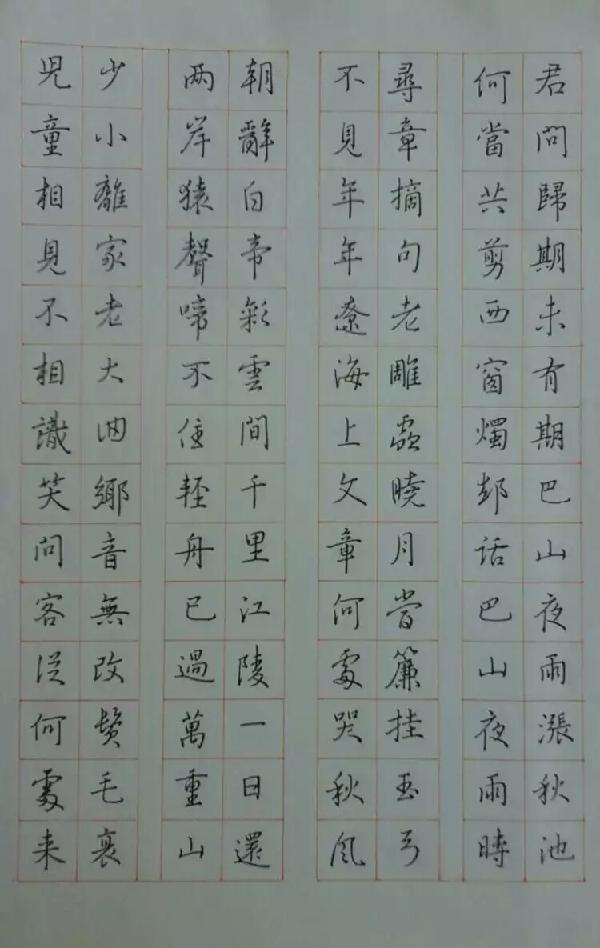 君問歸期未有期巴山夜雨漲秋池
何當共剪西窗燭却話巴山夜雨時
尋章摘句老雕蟲曉月當簾挂玉弓
不見年年遼海上文章何處哭秋風
朝辭白帝彩雲間千里江陵一日還
两岸猿聲啼不住輕舟已過萬重山
少小離家老大回鄉音無改鬢毛衰
児童相見不相識笑問客從何處来